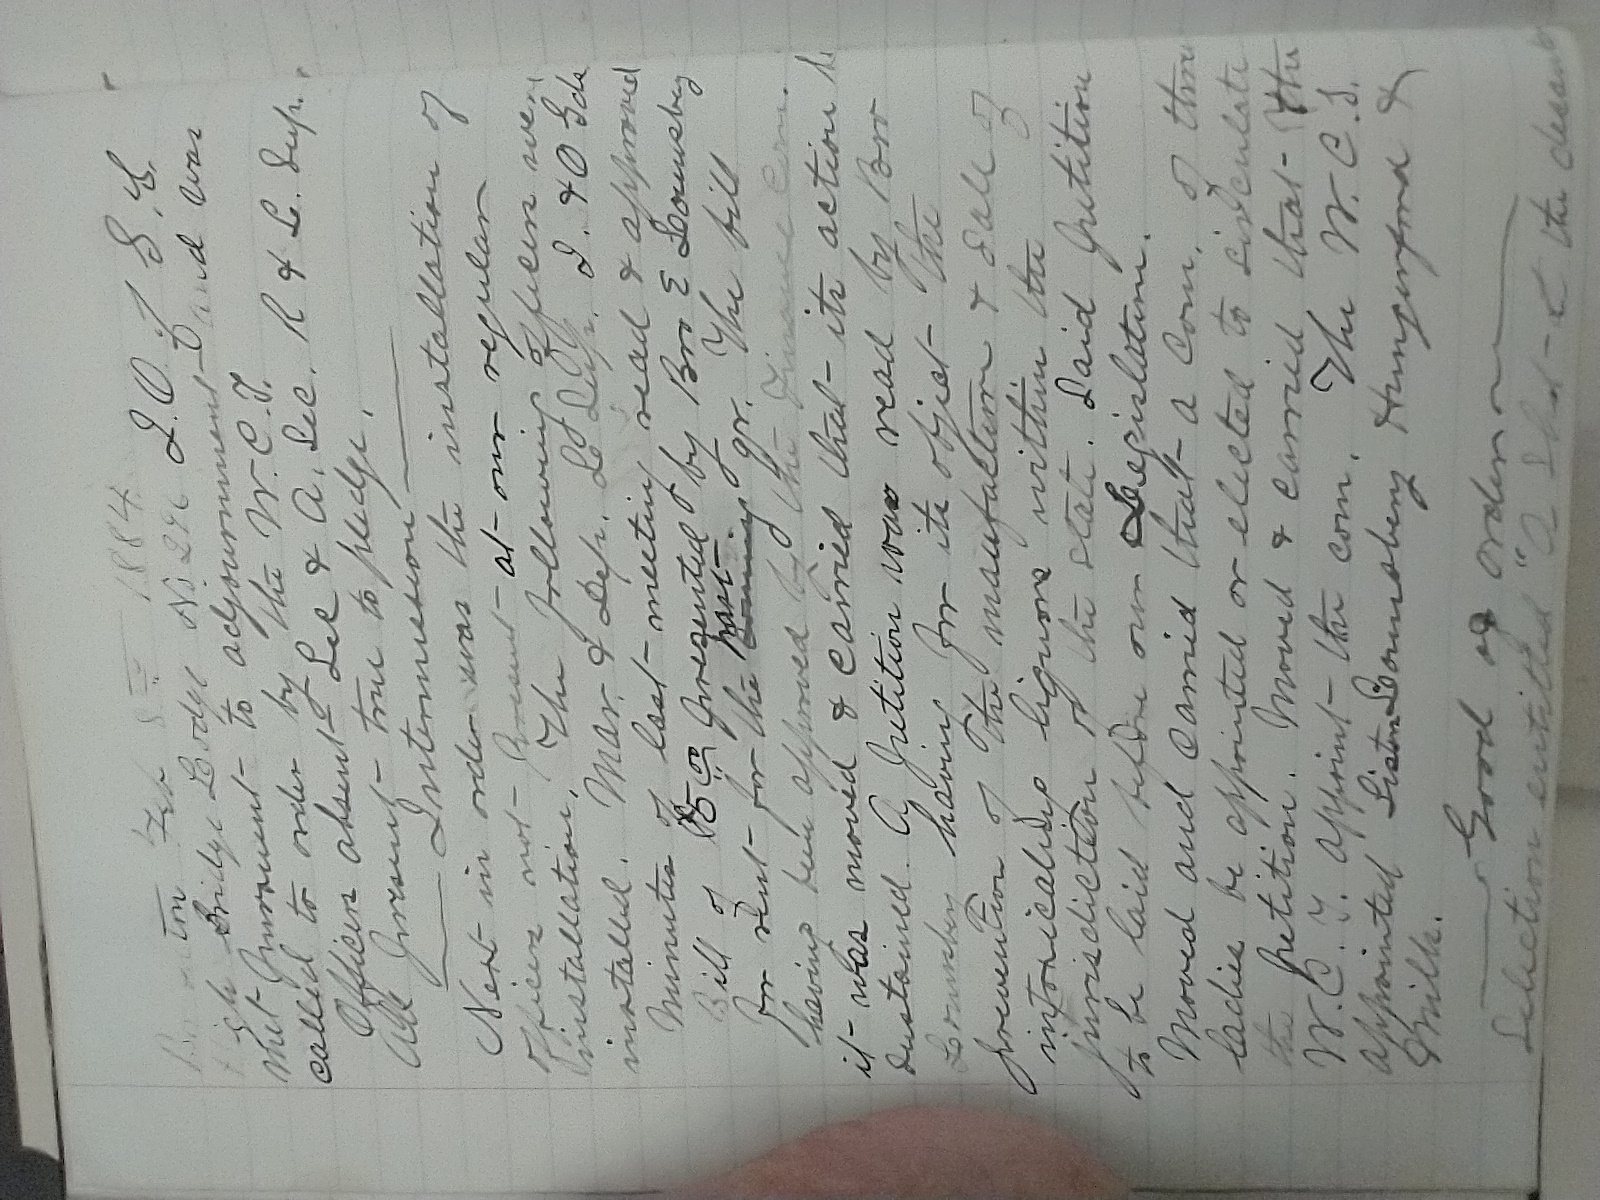 Feb 8th 1884
Bridge Lodge No 296 I.O. of G.T.
met pursuant to adjournment and was
called to order by the W.C.T.
Officers absent Sec & A. Sec. R & L. Sup.
All present true to pledge.
Intermission
Next in order was the installation of
officers not present at our regular
installation. The following officers were
installed. Mar. & Dep. L Sup. I. & O Gds
Minutes of last meeting read & approved
Bill of $5.00 presented by Bro E Lounsbery
for rent for the coming past qr. The bill
having been approved by the Finance Com.
it was moved & carried that its action be
sustained. A petition was read by Bro
Lounsbery having for its object the
prevention of the maufacture & sale of
intoxicating liquors within the
jurisdiction of the state. Said petition
to be laid before our Legislature.
Moved and carried that a Com. of three
ladies be appointed or elected to circulate
the petition. Moved & carried that the
W.C.T. appoint the com. The W.C.T.
appointed Sister Lounsbery Hungerford &
Milk.
Good of order
Selection entitled "A Shot the